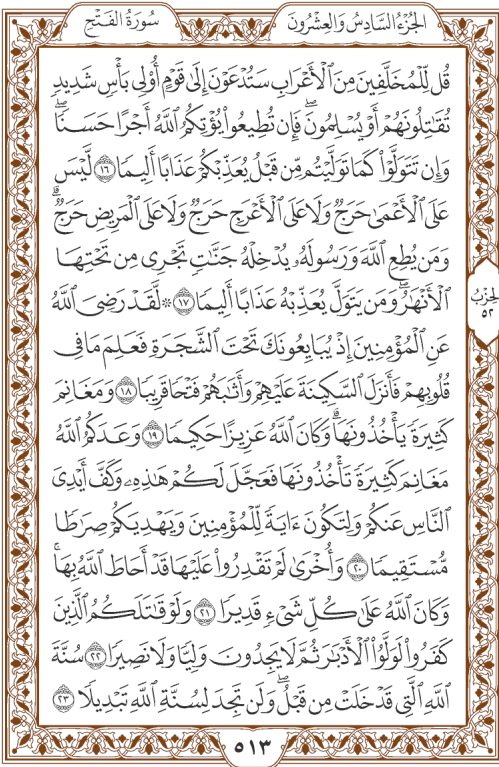 الجُزْءُ السَّادِسُ وَالعِشْرُونَ
سُورَةُ الفَتْحِ
قُل لِّلْمُخَلَّفِينَ مِنَ ٱلْأَعْرَابِ سَتُدْعَوْنَ إِلَىٰ قَوْمٍ أُو۟لِى بَأْسٍ شَدِيدٍ
تُقَـٰتِلُونَهُمْ أَوْ يُسْلِمُونَ ۖ فَإِن تُطِيعُوا۟ يُؤْتِكُمُ ٱللَّهُ أَجْرًا حَسَنًا ۖ
وَإِن تَتَوَلَّوْا۟ كَمَا تَوَلَّيْتُم مِّن قَبْلُ يُعَذِّبْكُمْ عَذَابًا أَلِيمًا ١٦ لَّيْسَ
عَلَى ٱلْأَعْمَىٰ حَرَجٌ وَلَا عَلَى ٱلْأَعْرَجِ حَرَجٌ وَلَا عَلَى ٱلْمَرِيضِ حَرَجٌ ۗ
وَمَن يُطِعِ ٱللَّهَ وَرَسُولَهُۥ يُدْخِلْهُ جَنَّـٰتٍ تَجْرِى مِن تَحْتِهَا
ٱلْأَنْهَـٰرُ ۖ وَمَن يَتَوَلَّ يُعَذِّبْهُ عَذَابًا أَلِيمًا ١٧ ۞ لَّقَدْ رَضِىَ ٱللَّهُ
عَنِ ٱلْمُؤْمِنِينَ إِذْ يُبَايِعُونَكَ تَحْتَ ٱلشَّجَرَةِ فَعَلِمَ مَا فِى
قُلُوبِهِمْ فَأَنزَلَ ٱلسَّكِينَةَ عَلَيْهِمْ وَأَثَـٰبَهُمْ فَتْحًا قَرِيبًا ١٨ وَمَغَانِمَ
كَثِيرَةً يَأْخُذُونَهَا ۗ وَكَانَ ٱللَّهُ عَزِيزًا حَكِيمًا ١٩ وَعَدَكُمُ ٱللَّهُ
مَغَانِمَ كَثِيرَةً تَأْخُذُونَهَا فَعَجَّلَ لَكُمْ هَـٰذِهِۦ وَكَفَّ أَيْدِىَ
ٱلنَّاسِ عَنكُمْ وَلِتَكُونَ ءَايَةً لِّلْمُؤْمِنِينَ وَيَهْدِيَكُمْ صِرَٰطًا
مُّسْتَقِيمًا ٢٠ وَأُخْرَىٰ لَمْ تَقْدِرُوا۟ عَلَيْهَا قَدْ أَحَاطَ ٱللَّهُ بِهَا ۚ
وَكَانَ ٱللَّهُ عَلَىٰ كُلِّ شَىْءٍ قَدِيرًا ٢١ وَلَوْ قَـٰتَلَكُمُ ٱلَّذِينَ
كَفَرُوا۟ لَوَلَّوُا۟ ٱلْأَدْبَـٰرَ ثُمَّ لَا يَجِدُونَ وَلِيًّا وَلَا نَصِيرًا ٢٢ سُنَّةَ
ٱللَّهِ ٱلَّتِى قَدْ خَلَتْ مِن قَبْلُ ۖ وَلَن تَجِدَ لِسُنَّةِ ٱللَّهِ تَبْدِيلًا ٢٣
الحِزْبُ
٥٢
٥١٣